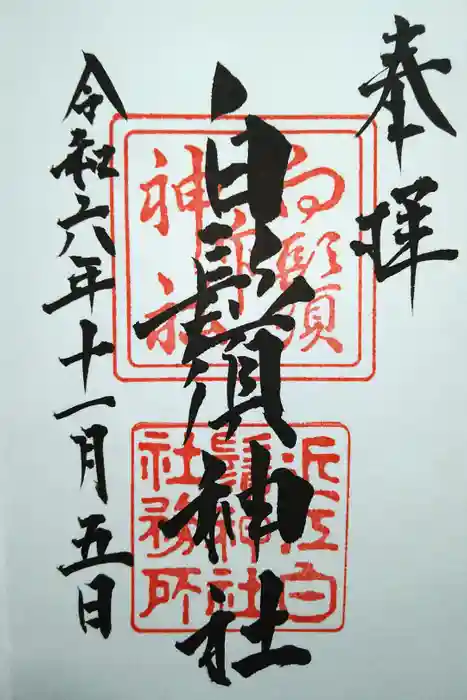 奉拝
白鬚神社
令和六年十一月五日
白鬚
神社
近江白
鬚神社
社務所